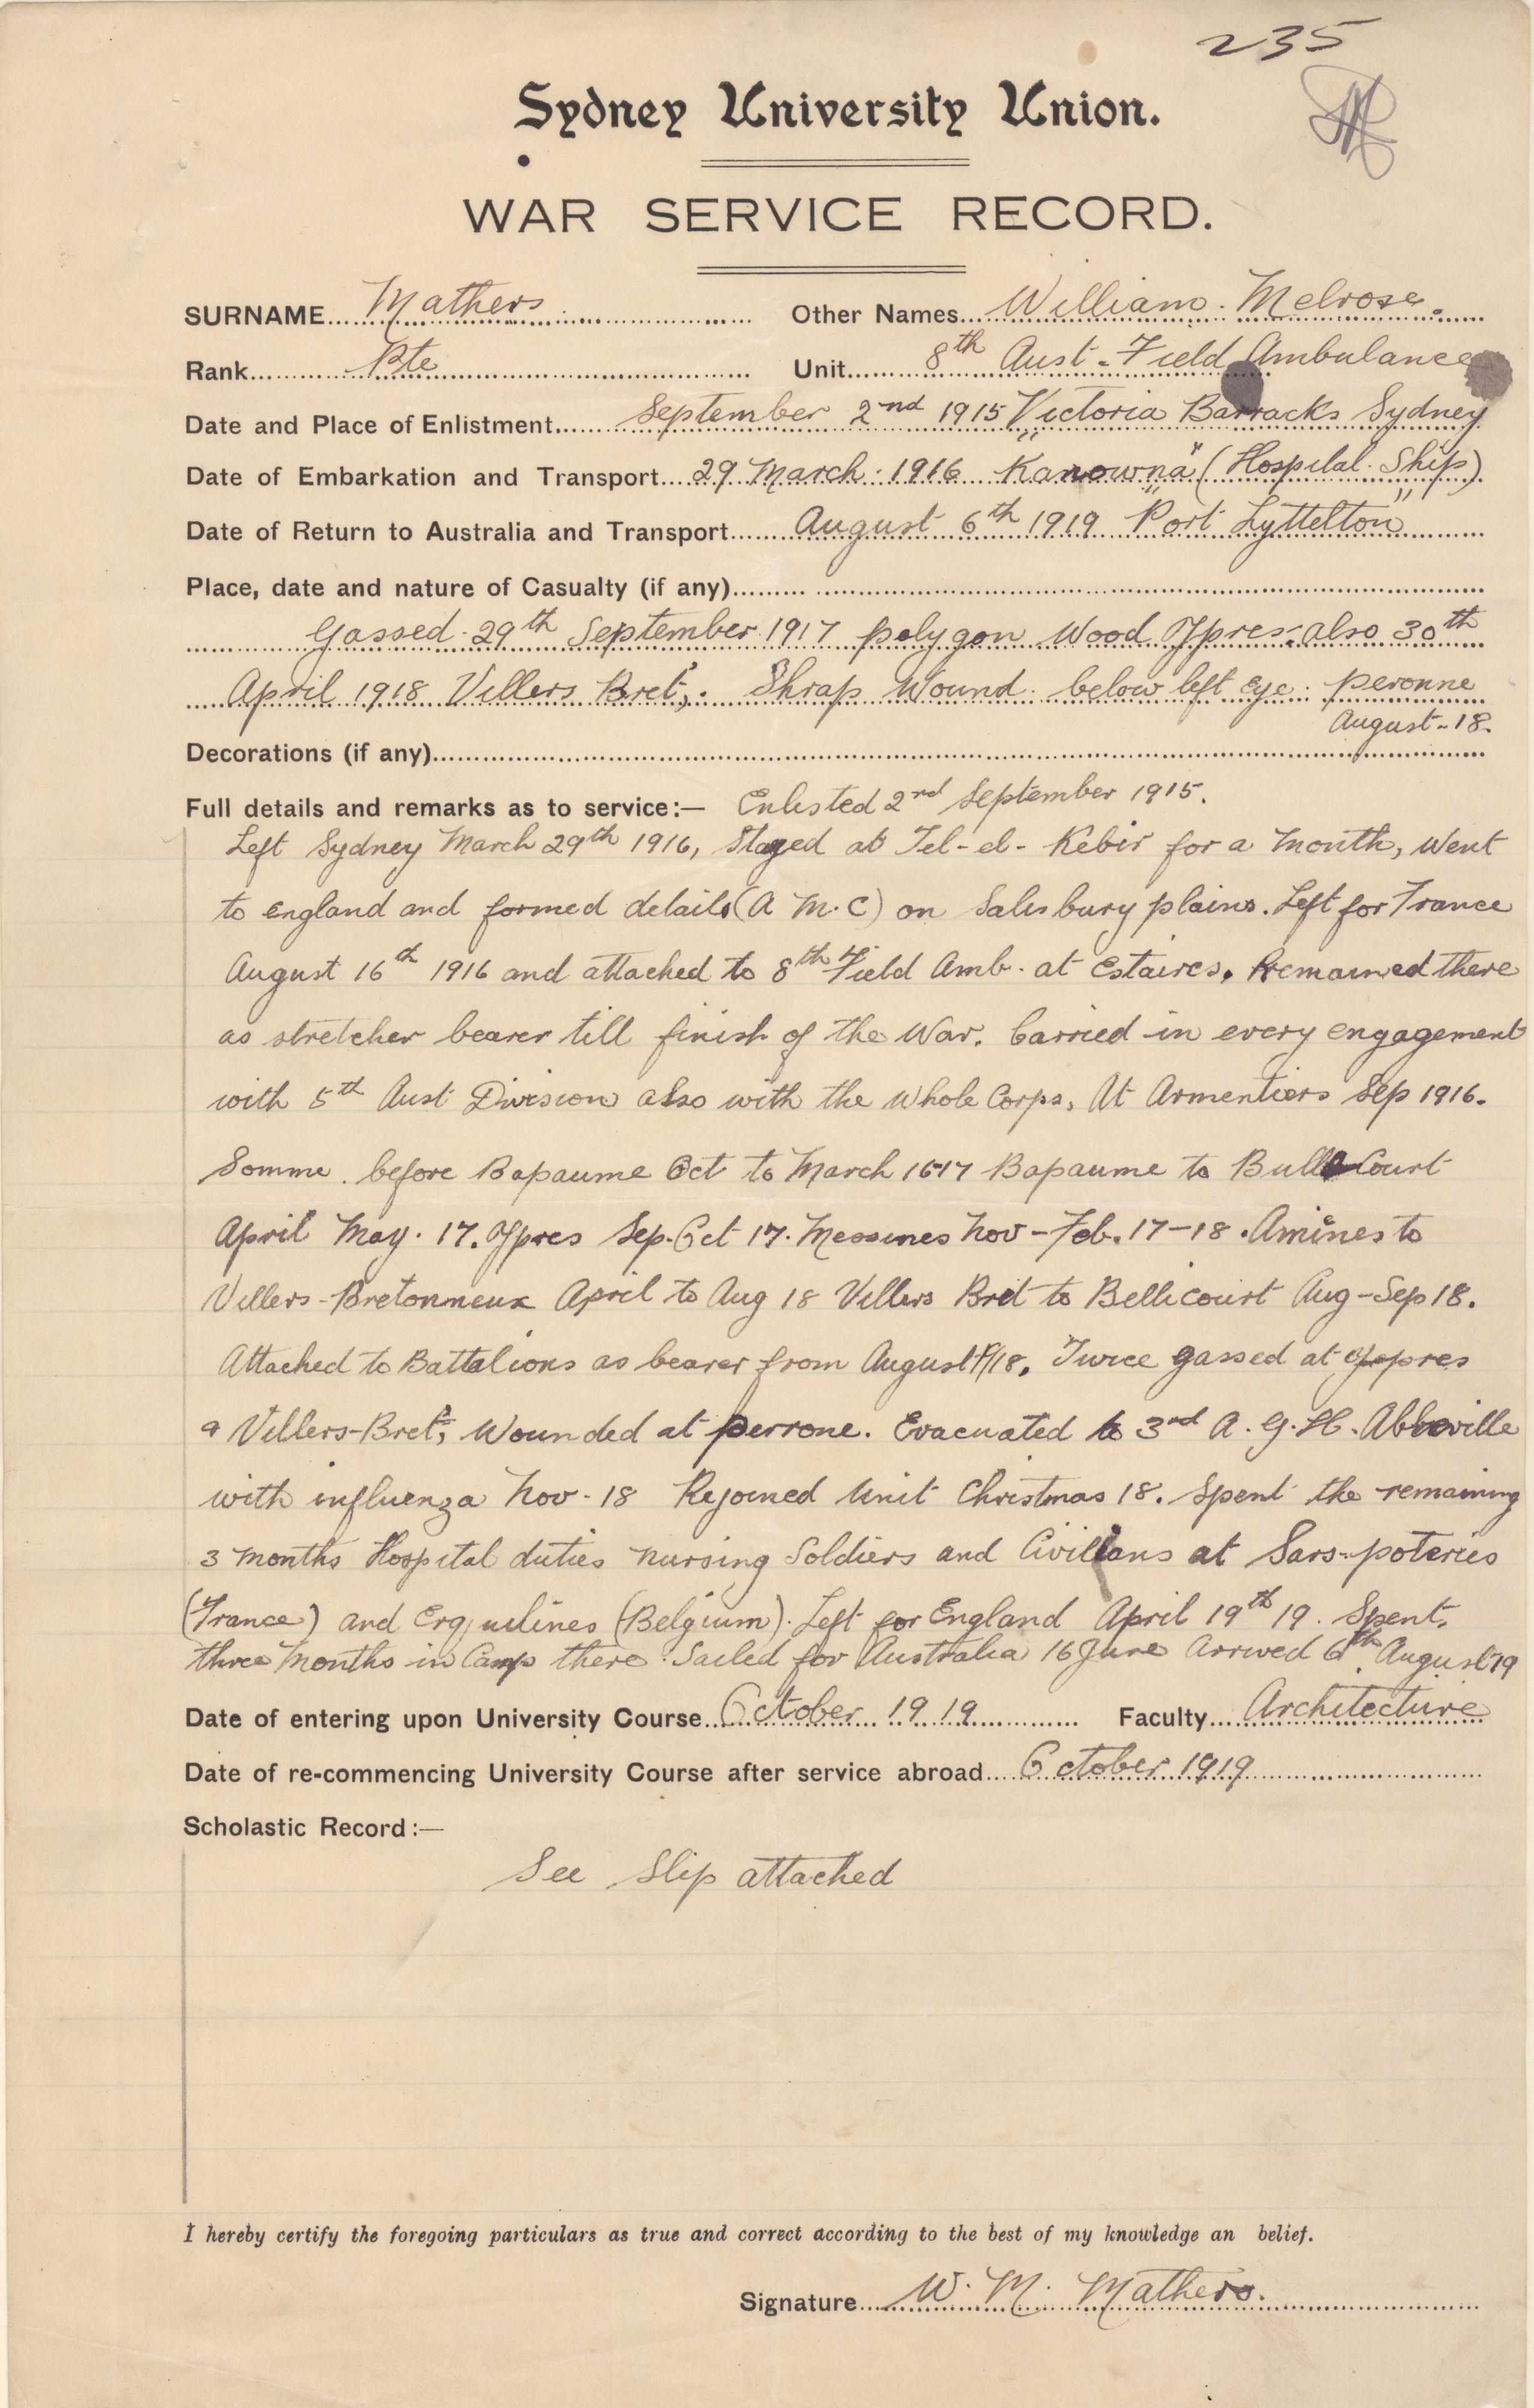 235
Sydney University Union.
WAR SERVICE RECORD.
SURNAME Mathers Other Names William Melrose.
Rank Pte Unit 8th Aust. Field Ambulance
Date and Place of Enlistment September 2nd 1915 Victoria Barracks Sydney
Date of Embarkation and Transport 29 March 1916 "Kanowna" (Hospital Ship)
Date of Return to Australia and Transport August 6th 1919 "Port Lyttelton"
Place, date and nature of Casualty (if any)
Gassed 29th September 1917 polygon Wood Ypres. also 30th
April 1918 Villers Bret; Shrap Wound below left eye peronne
August-18.
Decorations (if any)
Full details and remarks as to service:— Enlisted 2nd September 1915.
Left Sydney March 29th 1916, Stayed at Tel-el-Kebir for a month, went
to england and formed details (A M.C) on Salisbury plains. Left for France
August 16th 1916 and attached to 8th Field Amb. at Estaires. Remained there
as stretcher bearer till finish of the War. Carried in every engagement
with 5th Aust Division also with the whole Corps, At Armentiers Sep 1916.
Somme before Bapaume Oct to March 16-17 Bapaume to BulleCourt
April May. 17. Ypres Sep-Oct 17. Messines Nov-Feb. 17-18. Amines to
Villers-Bretonneux April to Aug 18 Villers Bret to Bellicourt Aug-Sep 18.
Attached to Battalions as bearer from August /18. Twice gassed at Ypres
& Villers-Bret; Wounded at perrone. Evacuated to 3rd A.G.H. Abbeville
with influenza Nov-18 Rejoined Unit Christmas 18. Spent the remaining
3 months Hospital duties nursing Soldiers and Civilians at Sars-poteries
(France) and Erquelines (Belgium). Left for England April 19th 19. Spent
three months in Camp there. Sailed for Australia 16 June Arrived 6th August 19
Date of entering upon University Course October 1919 Faculty Architecture
Date of re-commencing University Course after service abroad October 1919
Scholastic Record:—
See Slip attached
I hereby certify the foregoing particulars as true and correct according to the best of my knowledge an belief.
Signature W. M. Mathers.